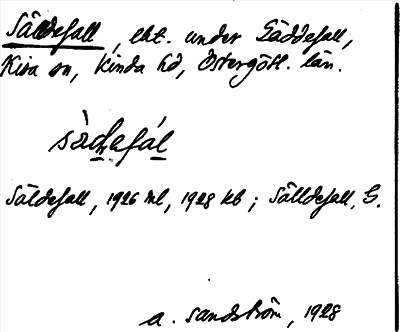 Säldefall, lht. under Gäddefall,
Kisa sn, Kinda hd, Östergötl. län.
Säldefall, 1926 ml, 1928 kb; Sälldefall, G.
A. Sandström, 1928